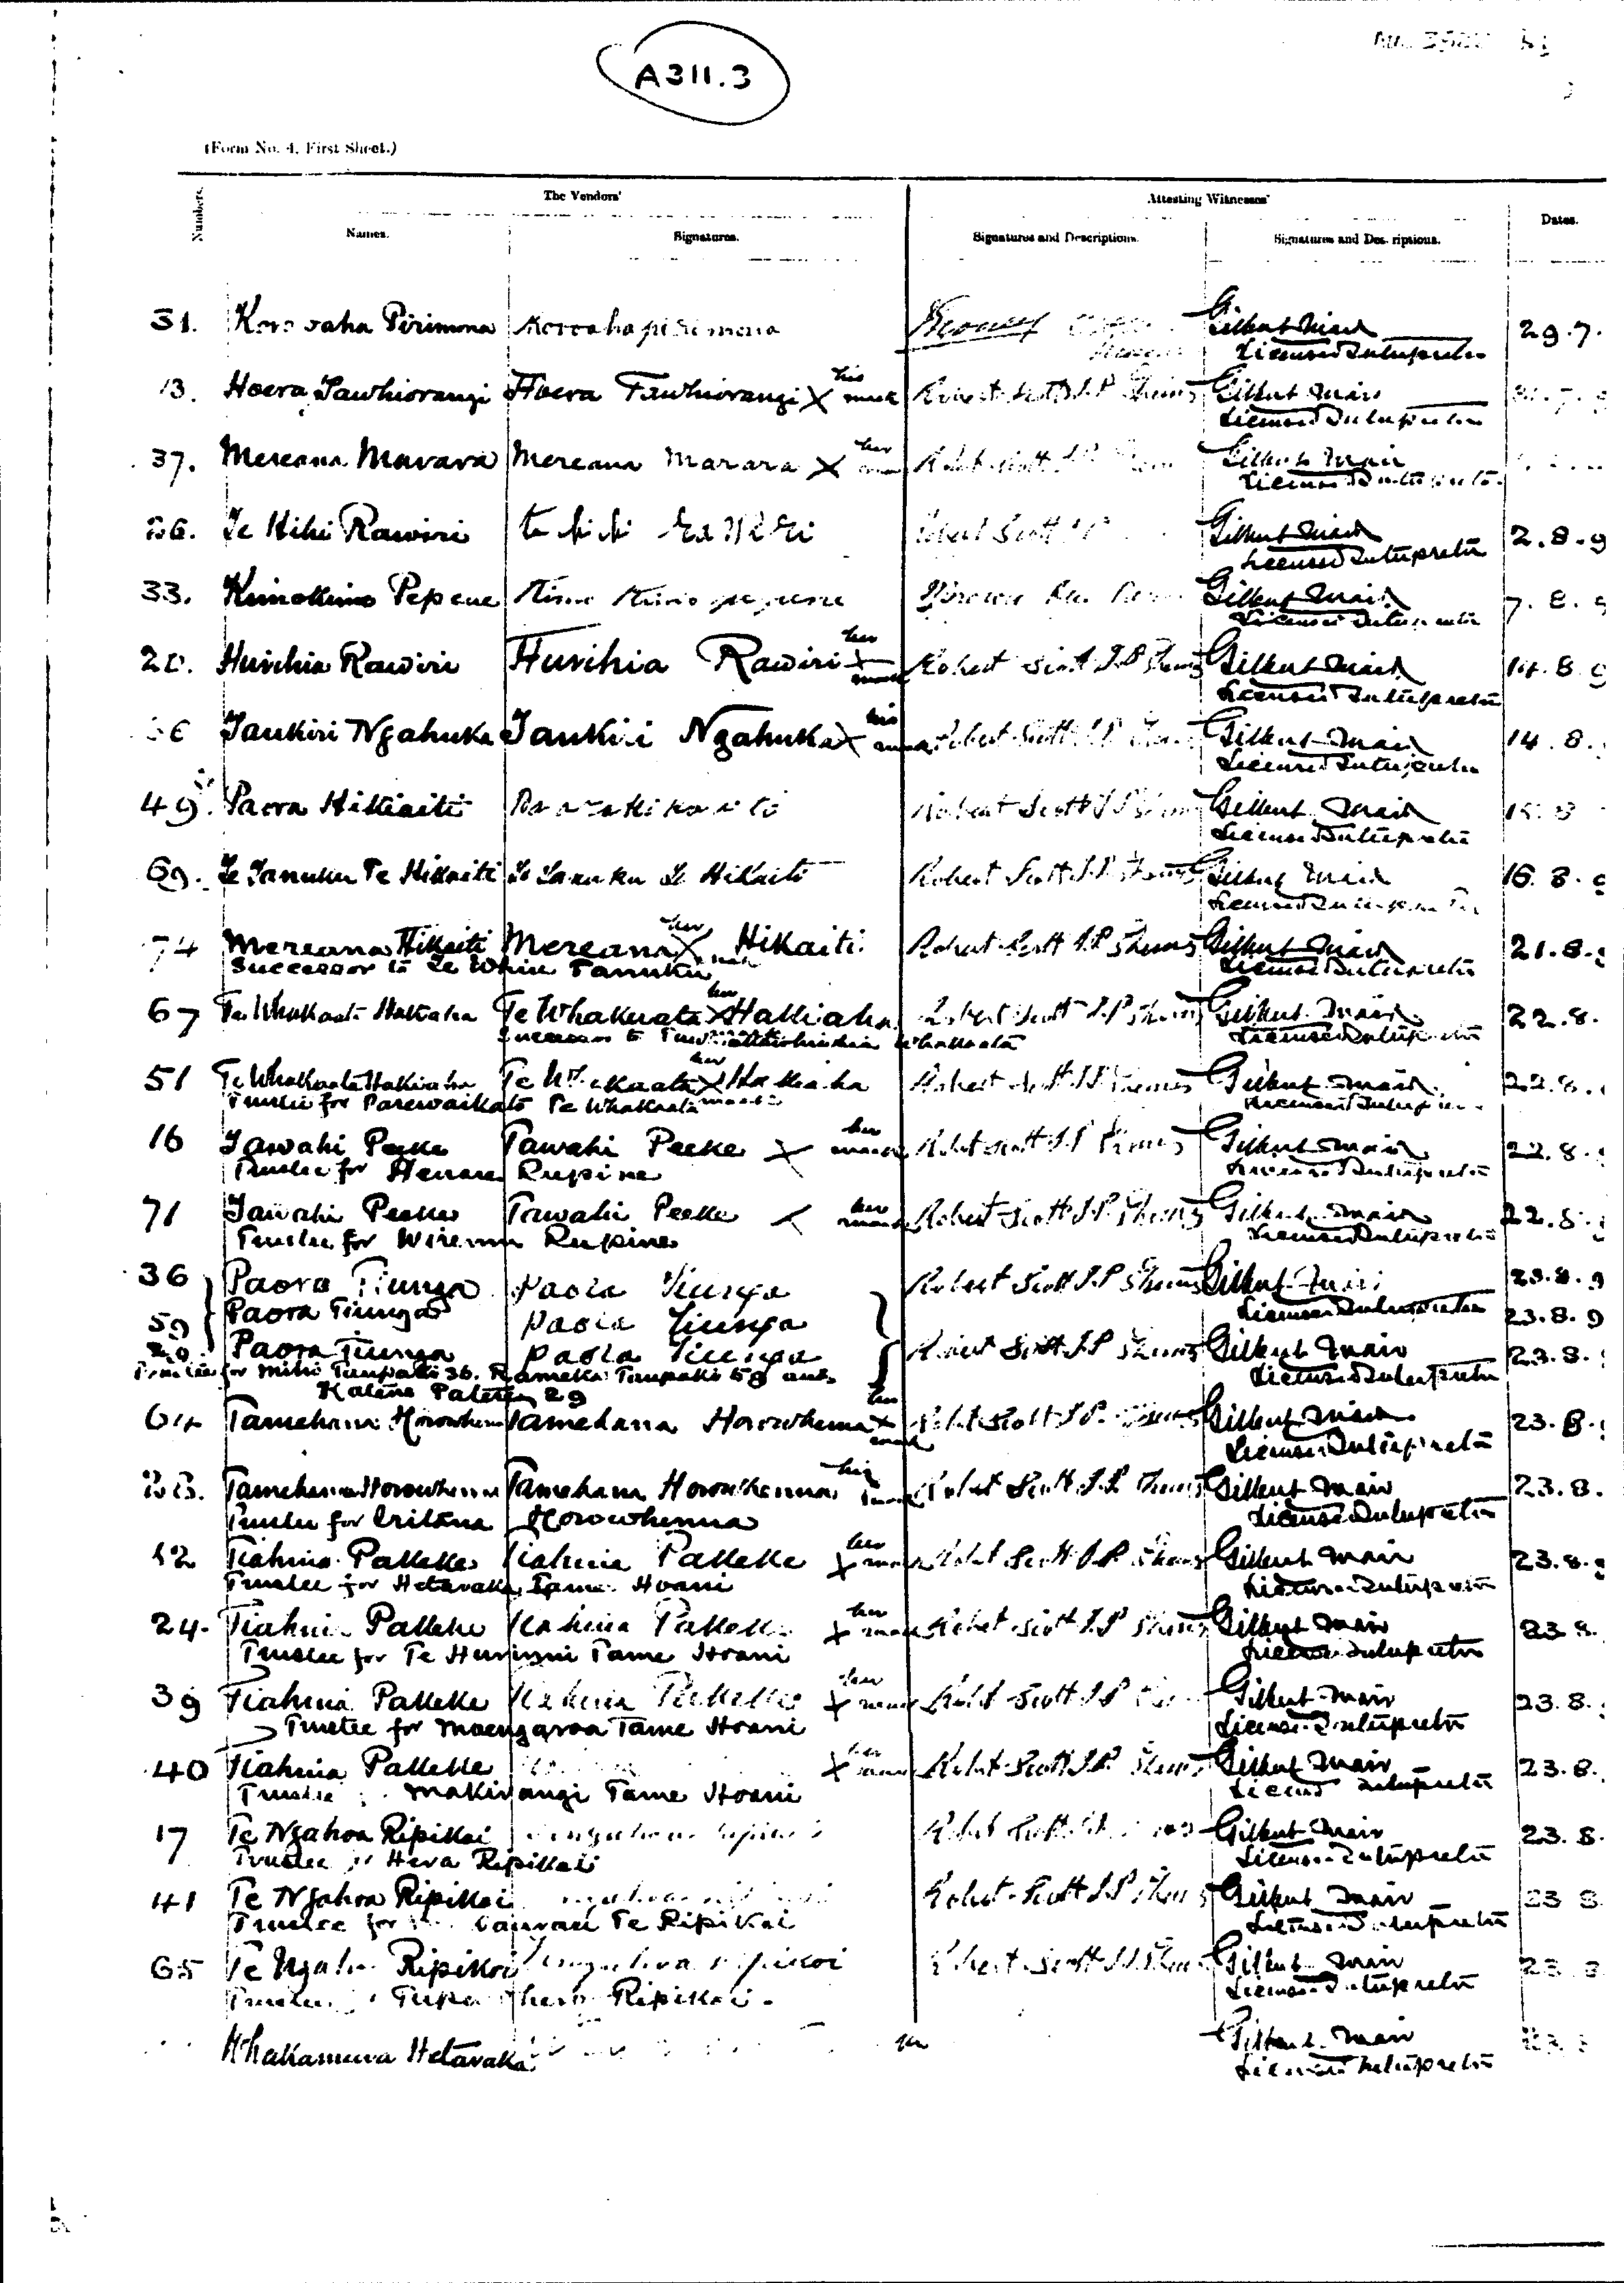 A311.3
(Form No. 4. First Sheet.)
Numbers. The Vendors' Attesting Witnesses' Dates.
Names. Signatures. Signatures and Descriptions. Signatures and Descriptions.
31. Pirimona Gilbert Mair 29.7.
Licensed Interpreter
13. Hoera Tawhiorangi Hoera Tawhiorangi X his mark Robert Scott J.P. Thames Gilbert Mair
Licensed Interpreter
37. Mereana Marara Mereana Marara X her Robert Scott J.P. Gilbert Mair
Licensed Interpreter
26. Te Hihi Rawiri te hi hi Ra Wi Ri Robert Scott Gilbert Mair 2.8.9
Licensed Interpreter
33. Kimokimo Pepene Kimo Kimo pepene Gilbert Mair 7.8.9
Licensed Interpreter
20. Hurihia Rawiri Hurihia Rawiri X her mark Robert Scott J.P. Thames Gilbert Mair 14.8.9
Licensed Interpreter
Taukiri Ngahuka Taukiri Ngahuka X his mark Robert Scott J.P. Gilbert Mair 14.8.
Licensed Interpreter
49. Paora Hikiaiti Robert Scott J.P. Gilbert Mair 15.8
Licensed Interpreter
69. Te Tanuku Te Hikaiti Te Tanuku Te Hikaiti Robert Scott J.P. Thames Gilbert Mair 16.8.9
Licensed Interpreter
74 Mereana Hikaiti Mereana X her mark Hikaiti Robert Scott J.P. Thames Gilbert Mair 21.8.9
Successor to Te Whiu Tanuku Licensed Interpreter
67 Te Whakaata Hakiaha Te Whakaata X her Hakiaha Robert Scott J.P. Thames Gilbert Mair 22.8.
Successor to Whakaata Licensed Interpreter
51 Te Whakaata Hakiaha Te Whakaata X her Hakiaha Robert Scott J.P. Thames Gilbert Mair 22.8.
Trustee for Parewaikato Te Whakaata mark Licensed Interpreter
16 Tawahi Peeke Tawahi Peeke X her mark Robert Scott J.P. Thames Gilbert Mair 22.8.
Trustee for Henare Rupine Licensed Interpreter
71 Tawahi Peeke Tawahi Peeke X her mark Robert Scott J.P. Thames Gilbert Mair 22.8.
Trustee for Wiremu Rupine Licensed Interpreter
36 Paora Tiunga Paora Tiunga Robert Scott J.P. Thames Gilbert Mair 23.8.9
59 Paora Tiunga Paora Tiunga Licensed Interpreter 23.8.9
29 Paora Tiunga Paora Tiunga Robert Scott J.P. Thames Gilbert Mair 23.8.
Trustee for Mihi Taupaki 36. Rameka Taupaki 59 and Licensed Interpreter
Katene Patene 29
64 Tamehana Horowhenua Tamehana Horowhenua X mark Robert Scott J.P. Thames Gilbert Mair 23.8.
Licensed Interpreter
Tamehana Horowhenua Tamehana Horowhenua his mark Robert Scott J.P. Thames Gilbert Mair 23.8.
Trustee for Eritana Horowhenua Licensed Interpreter
12 Tiahuia Pakeke Tiahuia Pakeke X her mark Robert Scott J.P. Thames Gilbert Mair 23.8.9
Trustee for Hetaraka Tame Hoani Licensed Interpreter
24. Tiahuia Pakeke Tiahuia Pakeke X her mark Robert Scott J.P. Thames Gilbert Mair 23.8.
Trustee for Te Hurinui Tame Hoani Licensed Interpreter
39 Tiahuia Pakeke Tiahuia Pakeke X her mark Robert Scott J.P. Gilbert Mair 23.8.
Trustee for Maengaroa Tame Hoani Licensed Interpreter
40 Tiahuia Pakeke X her mark Robert Scott J.P. Thames Gilbert Mair 23.8.
Trustee Makirangi Tame Hoani Licensed Interpreter
17 Te Ngahoa Ripikoi Robert Scott Gilbert Mair 23.8.
Trustee Hera Ripikoi Licensed Interpreter
41 Te Ngahoa Ripikoi Robert Scott J.P. Thames Gilbert Mair 23 8
Trustee for Te Ripikoi Licensed Interpreter
65 Te Ngahoa Ripikoi Te ngahoa ripikoi Robert Scott J.P. Thames Gilbert Mair 23.8
Trustee Ripikoi Licensed Interpreter
Whakamura Hetaraka Gilbert Mair
Licensed Interpreter